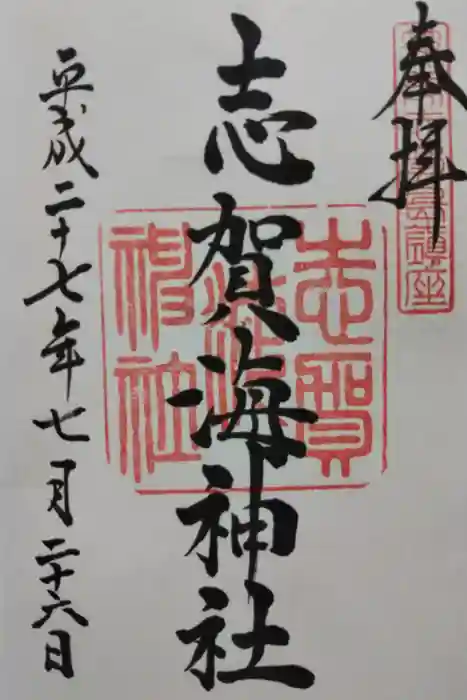 奉拝
志賀海神社
志賀海神社
平成二十七年七月二十六日